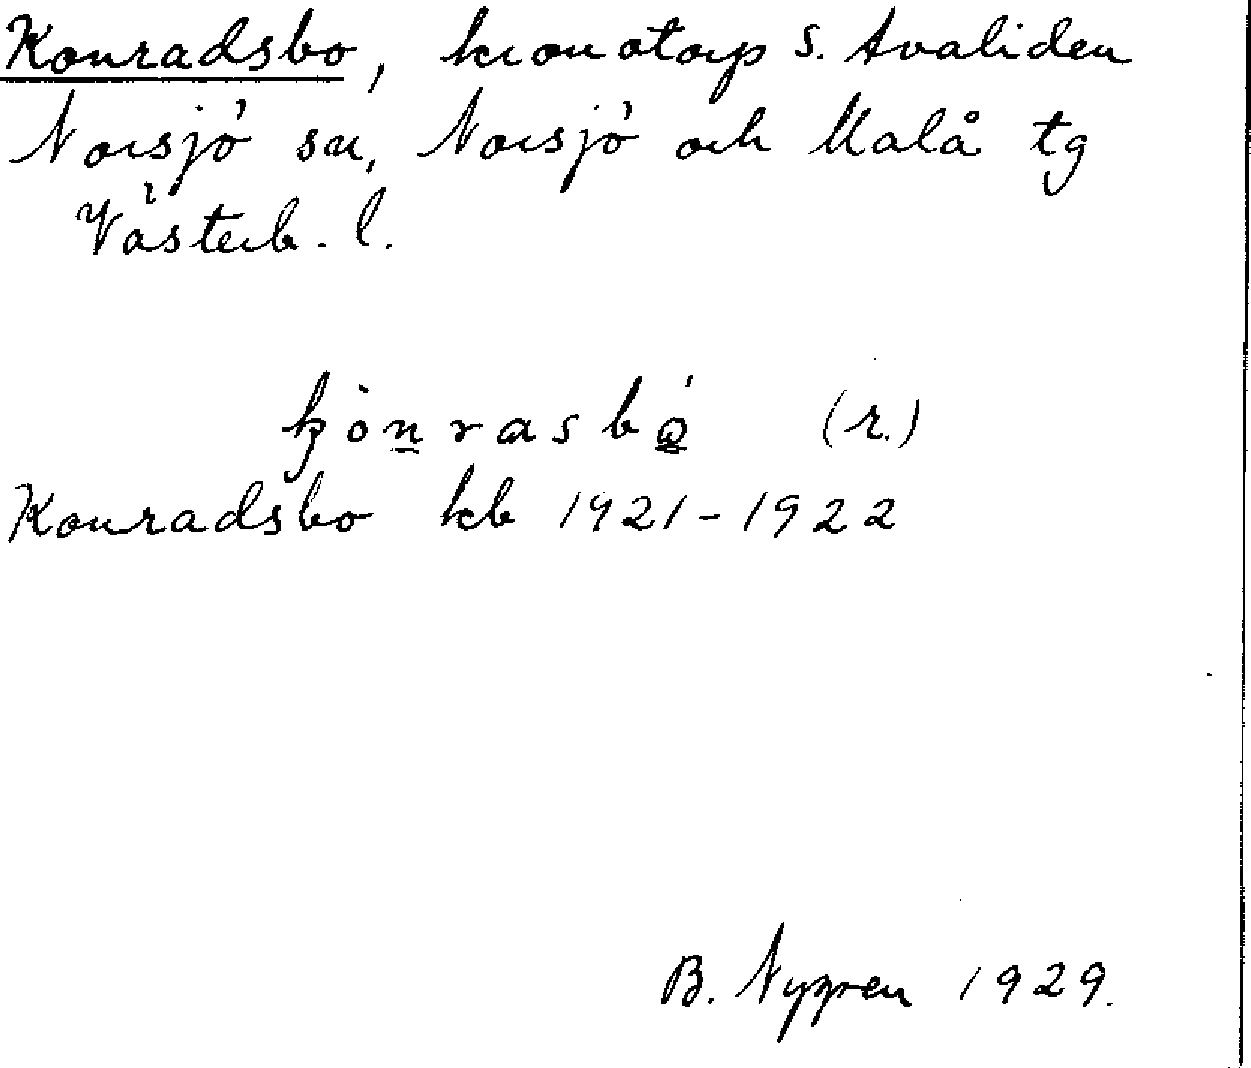 Konradsbo, kronotorp S. Avaliden
Norsjö sn, Norsjö och Malå tg
Västerb. l.
kònrasbó (r.)
Konradsbo kb 1921-1922
B. Nygren 1929.